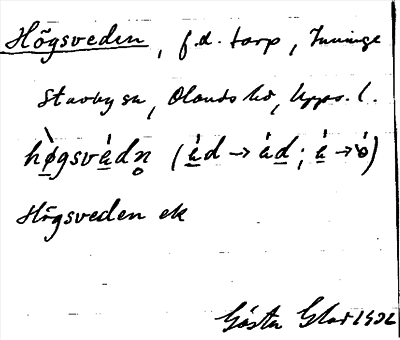 Högsveden, f.d. torp, Tuninge
Stavby sn, Olands hd, Upps. l.
hø̀gsvédn̥ (éd → ád; é → ò)
Högsveden ek
Gösta